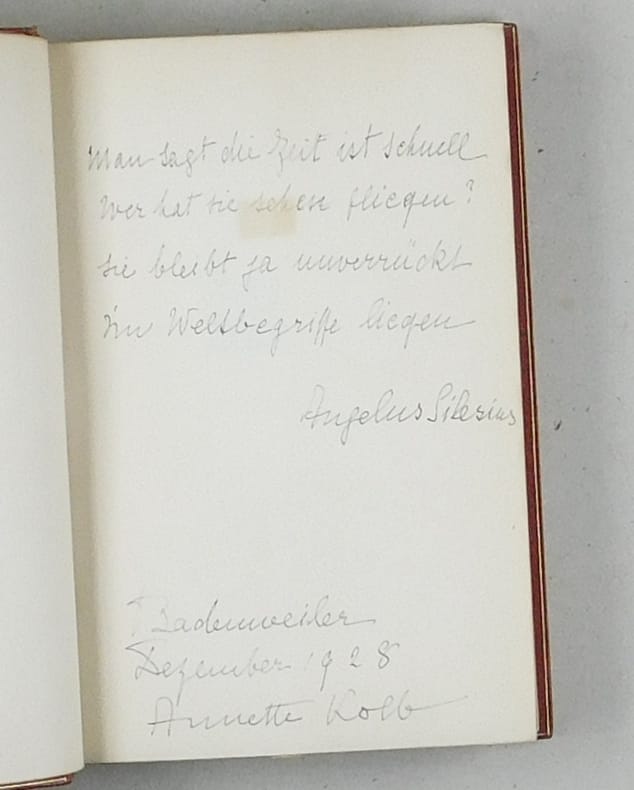 Man sagt die Zeit ist schnell
Wer hat sie sehen fliegen?
Sie bleibt ja unverrückt
im Weltbegriffe liegen
Angelus Silesius
Badenweiler
Dezember 1928
Annette Kolb